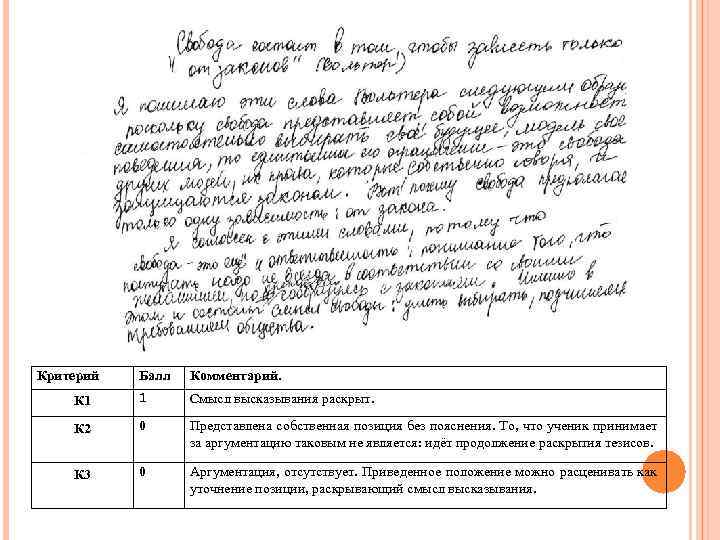 "Свобода состоит в том, чтобы зависеть только
от законов" (Вольтер)
Я понимаю эти слова Вольтера следующим образ
поскольку свобода представляет собой возможност
самостоятельно выбирать своё будущее, модель свое
поведения, то единственным его ограничением - это свобода
других людей, их права, которые собственно говоря, и
защищаются законом. Вот почему свобода предполагае
только одну зависимость: от закона.
Я согласен с этими словами, потому что
свобода - это ещё и ответственность: понимание того, что
поступать надо не всегда в соответствии со своими
желаниями, с законами. Именно в
этом и состоит смысл свободы: уметь выбирать, подчиняясь
требованиям общества.
Критерий Балл Комментарий.
К1 1 Смысл высказывания раскрыт.
К2 0 Представлена собственная позиция без пояснения. То, что ученик принимает
за аргументацию таковым не является: идёт продолжение раскрытия тезисов.
К3 0 Аргументация, отсутствует. Приведенное положение можно расценивать как
уточнение позиции, раскрывающий смысл высказывания.